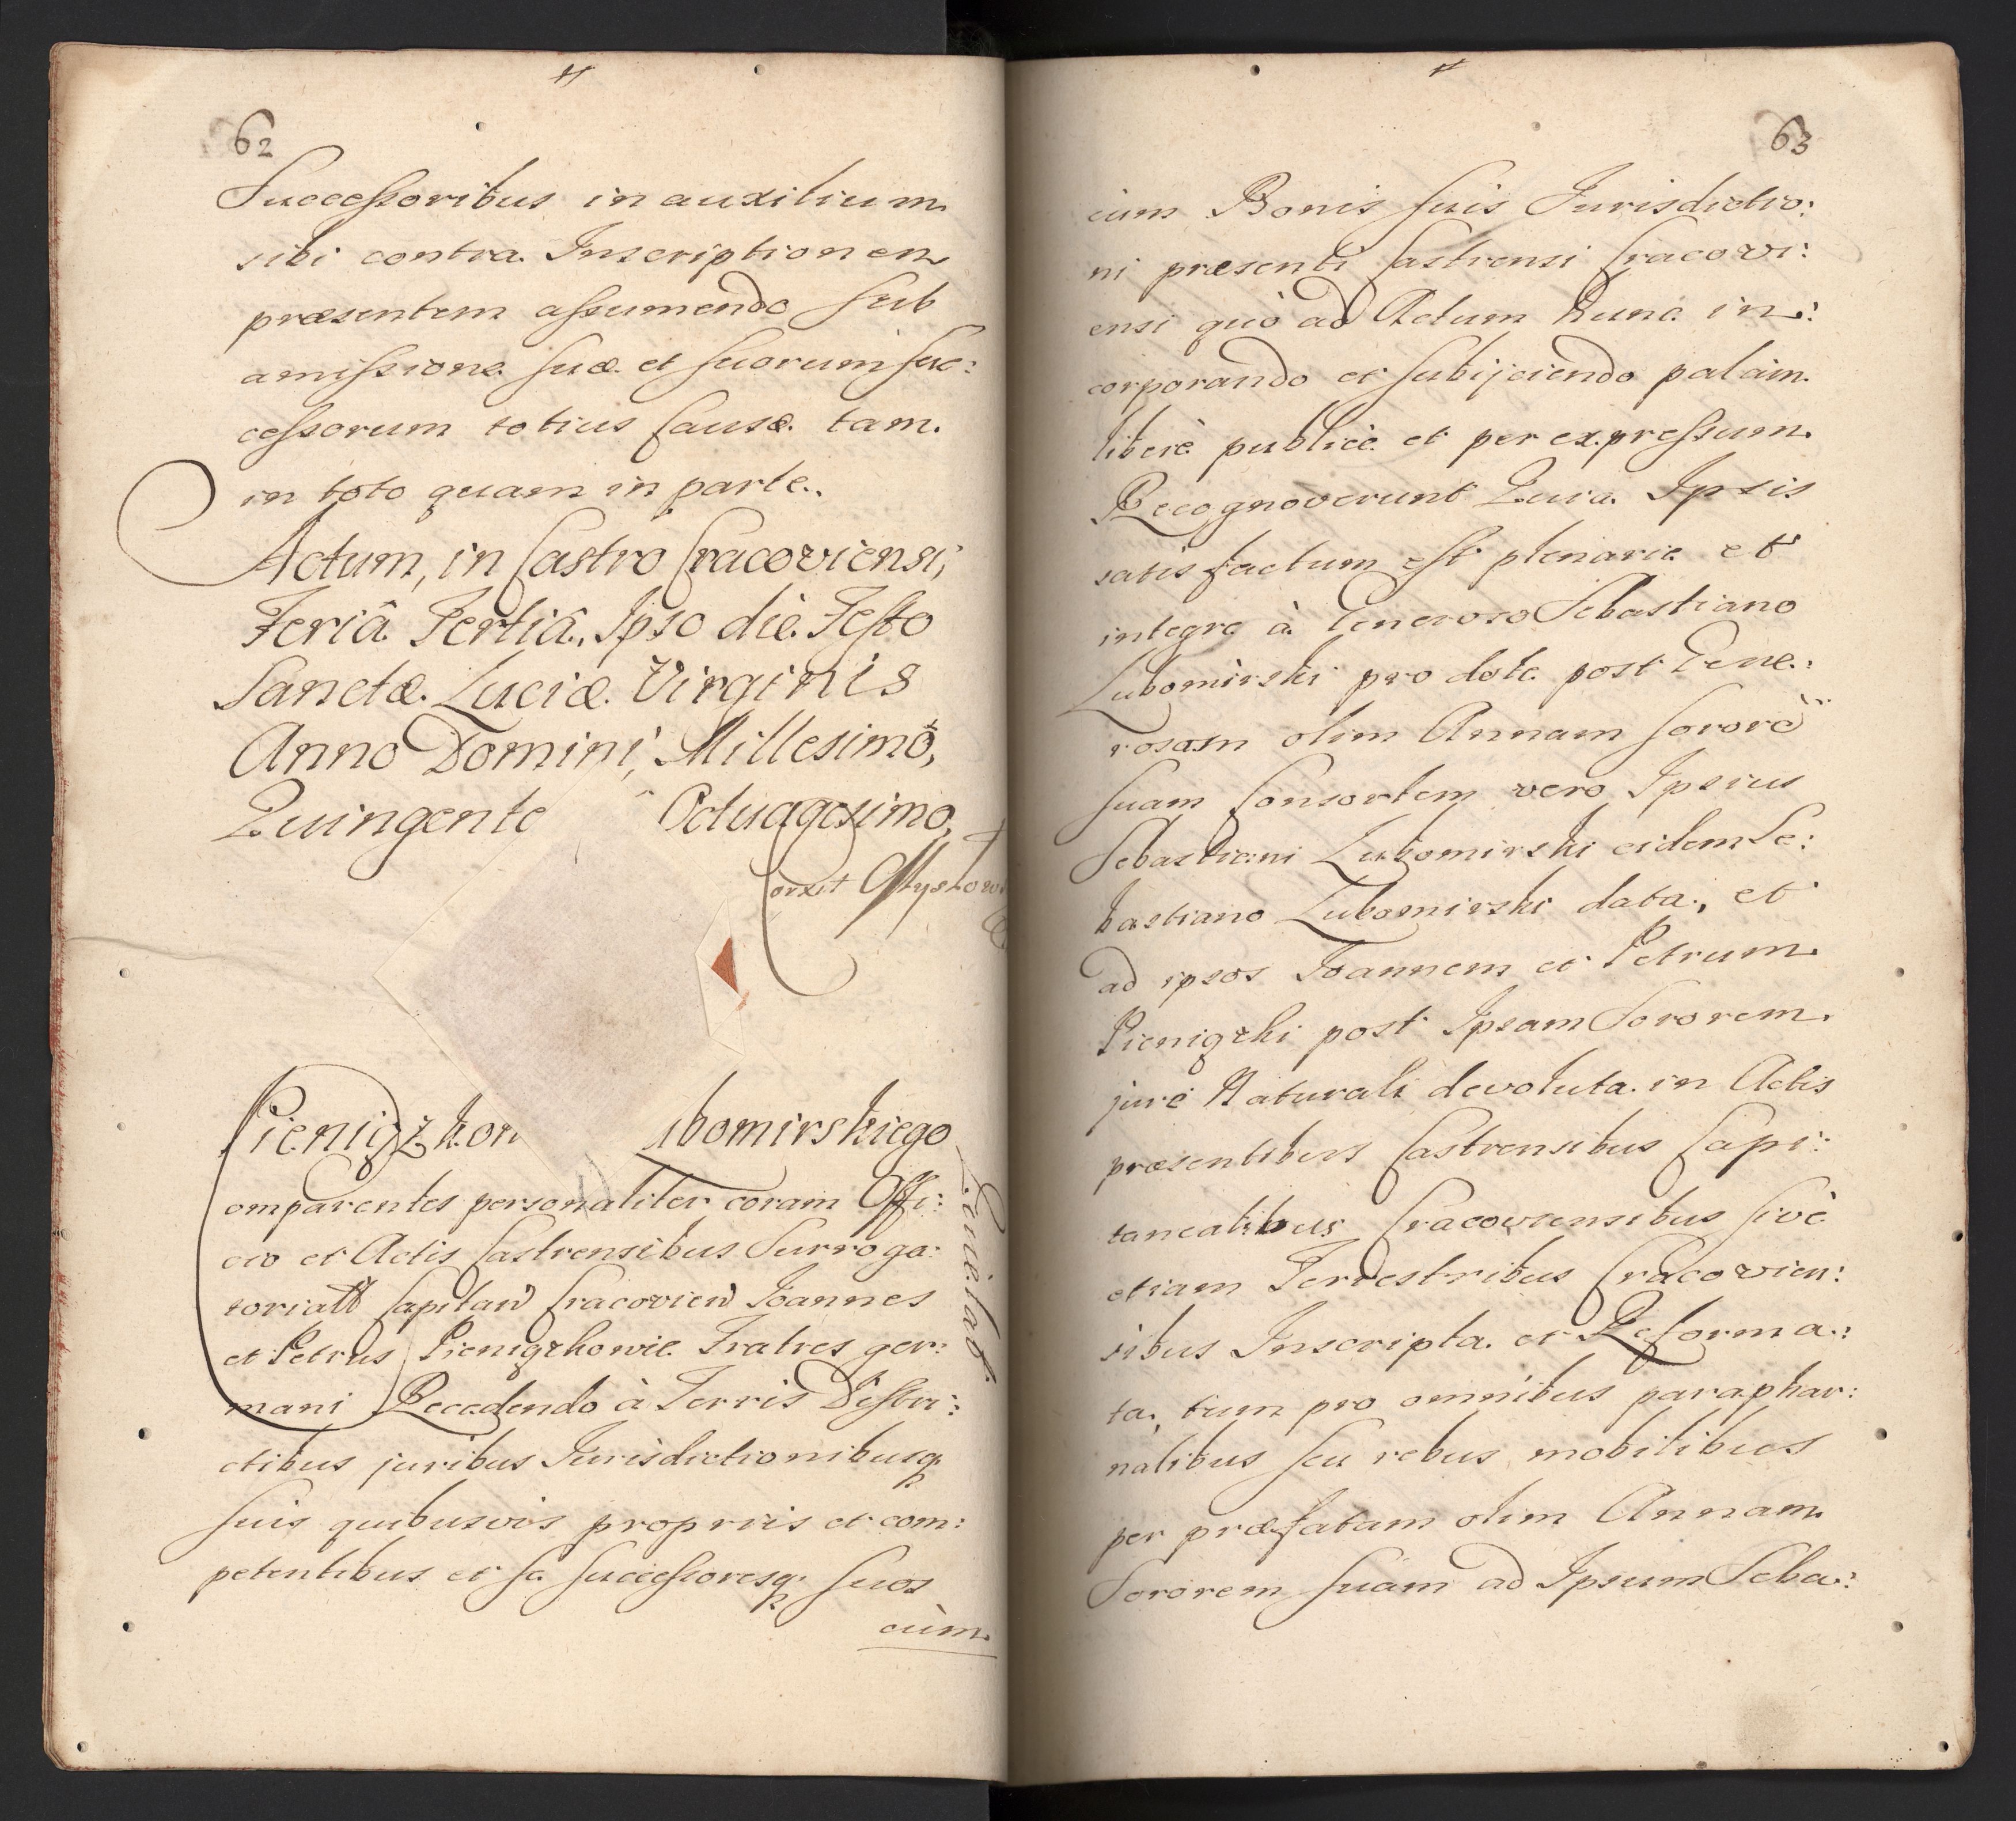 62
Successoribus in auxilium
sibi contra Inscriptionem
præsentem assumendo sub
amissione suæ et suorum suc:
cessorum totius Causæ tam
in toto quam in parte.
Actum, in Castro Cracoviensi,
Feriâ Tertiâ, Ipso die Festo
Sanctæ Luciæ Virginis
Anno Domini, Millesimo,
Quingente Octuagesimo,
Corxit
Pieniążkow ubomirskiego
Quietat
omparentes personaliter coram Offi:
cio et Actis Castrensibus Surroga:
toriatt Capitan Cracovien Joannes
et Petrus Pieniążkowie Fratres ger:
mani Recedendo à Terris Distri:
ctibus juribus Jurisdictionibusq
suis quibusvis proprijs et com:
petentibus et se successoresq suos
cùm
63
cum Bonis suis Jurisdictio:
ni præsenti Castrensi Cracovi:
ensi quò ad Actum hunc in:
corporando et subijciendo palàm
liberè publicè et per expressum
Recognoverunt Quia Ipsis
satisfactum est plenarie et
integre à Generoso Sebastiano
Lubomirski pro dote post Gene:
rosam olim Annam sororē
suam Consortem vero Ipsius
Sebastiani Lubomirski eidem Se:
bastiano Lubomirski data, et
ad ipsos Joannem et Petrum
Pieniązki post Ipsam Sororem
jure Naturali devoluta in Actis
præsentibus Castrensibus Capi:
tanealibus Cracoviensibus sivè
etiam Terrestribus Cracovien:
sibus Inscripta et Reforma:
ta, tum pro omnibus paraphar:
nalibus seu rebus mobilibus
per præfatam olim Annam
Sororem suam ad Ipsum Seba: